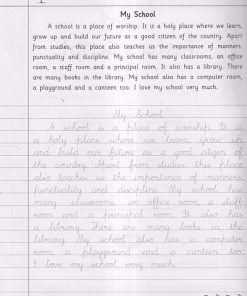 My School
A school is a place of worship. It is a holy place where we learn,
grow up and build our future as a good citizen of the country. Apart
from studies, this place also teaches us the importance of manners,
punctuality and discipline. My school has many classrooms, an office
room, a staff room and a principal room. It also has a library. There
are many books in the library. My school also has a computer room,
a playground and a canteen too. I love my school very much.
My School
A school is a place of worship. It is
a holy place where we learn, grow up
and build our future as a good citizen of
the country. Apart from studies, this place
also teaches us the importance of manners,
punctuality and discipline. My school has
many classrooms, an office room, a staff
room and a principal room. It also has
a library. There are many books in the
library. My school also has a computer
room, a playground and a canteen too.
I love my school very much.